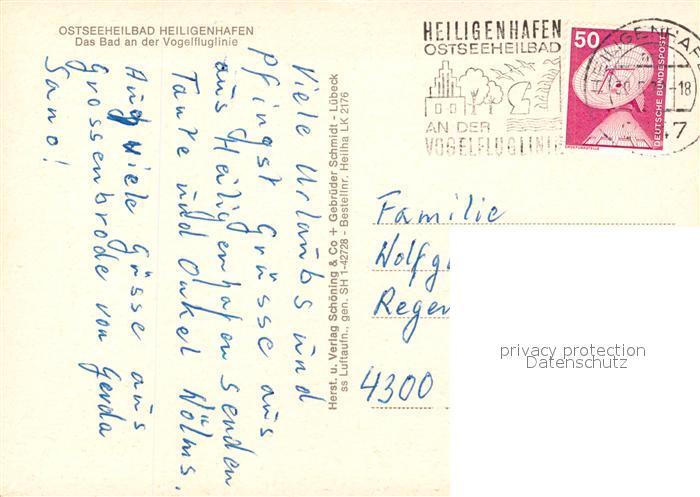 OSTSEEHEILBAD HEILIGENHAFEN
Das Bad an der Vogelfluglinie
Viele Urlaubs und
Pfingst grüsse aus
aus Heiligenhafen senden
Tante und Onkel Nölms.
Auch viele Grüsse aus
Grossenbrode von Gerda
Sano!
Herst. u. Verlag Schöning & Co + Gebrüder Schmidt - Lübeck
ss Luftaufn., gen. SH 1-42728 - Bestellnr. Heilha LK 2176
HEILIGENHAFEN
OSTSEEHEILBAD
AN DER
VOGELFLUGLINIE
50
DEUTSCHE BUNDESPOST
-18
47
Familie
Wolfg
Regen
4300
privacy protection
Datenschutz